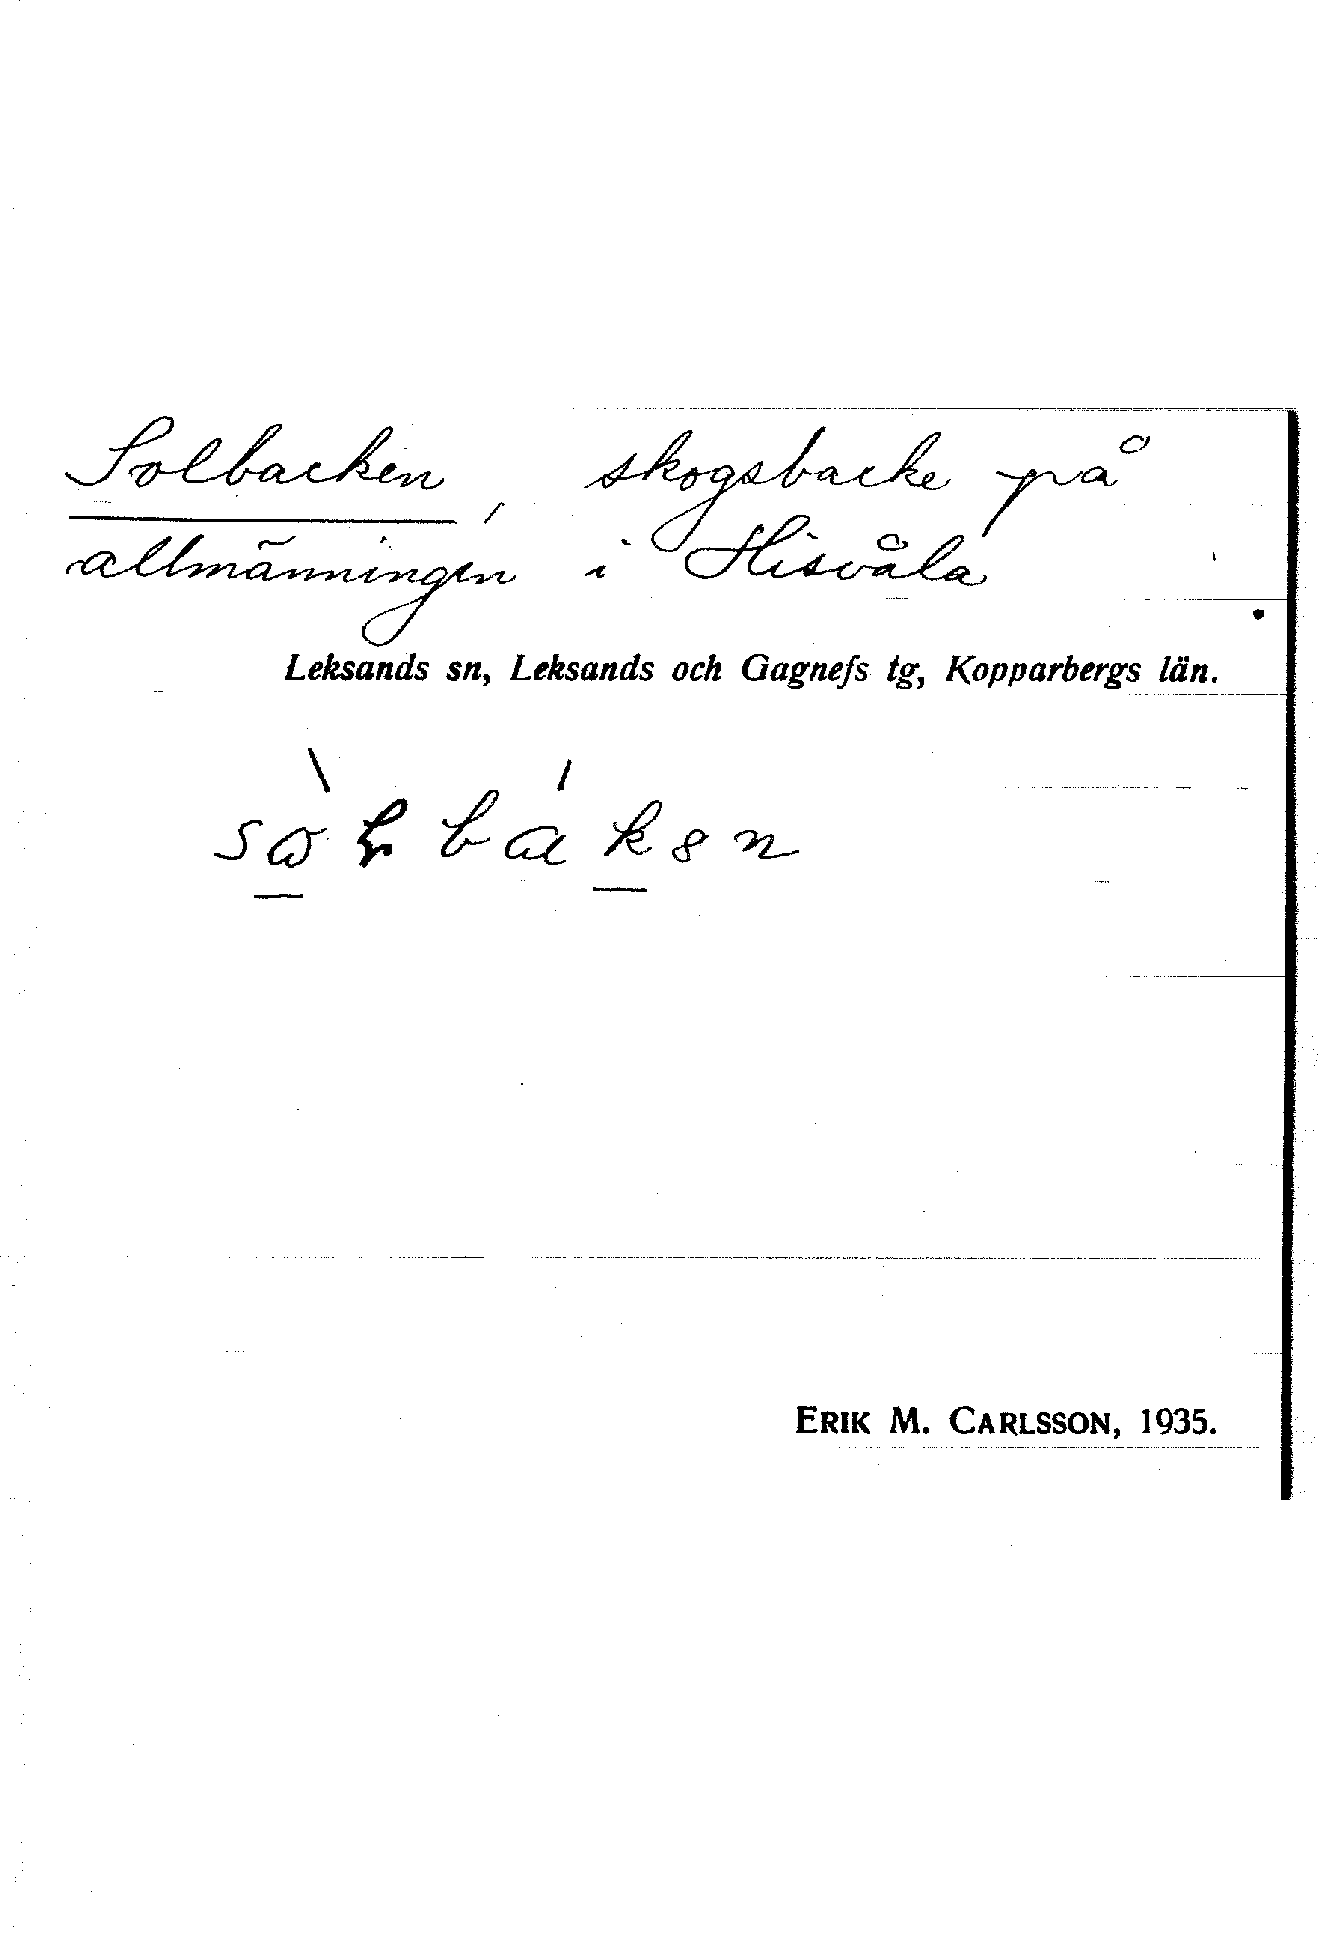 Solbacken, skogsbacke på
allmänningen i Hisvåla
Leksands sn, Leksands och Gagnefs tg, Kopparbergs län.
ERIK M. CARLSSON, 1935.